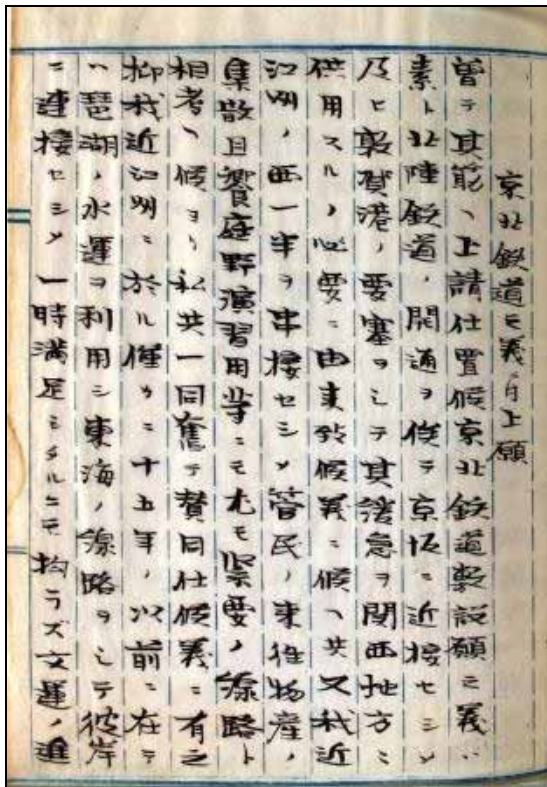 京北鉄道之義ニ付上願
曽テ其筋ヘ上請仕置候京北鉄道敷設願之義ハ
素ト北陸鉄道ノ開通ヲ俟テ京阪ニ近接セシメ
及ヒ敦賀港ノ要塞ヲシテ其緩急ヲ関西地方ニ
供用スルノ必要ニ由来致候義ニ候ヘ共又我近
江州ノ西一半ヲ串接セシメ管民ノ来往物産ノ
集散且饗庭野演習用等ニモ尤モ緊要ノ線路ト
相考ヘ候ヨリ私共一同奮テ賛同仕候義ニ有之
抑我近江州ニ於ル僅カニ十五年ノ以前ニ在テ
ハ琵湖ノ水運ヲ利用シ東海ノ線路ヲシテ彼岸
ニ連接セシメ一時満足ミタルニモ拘ラズ文運ノ進